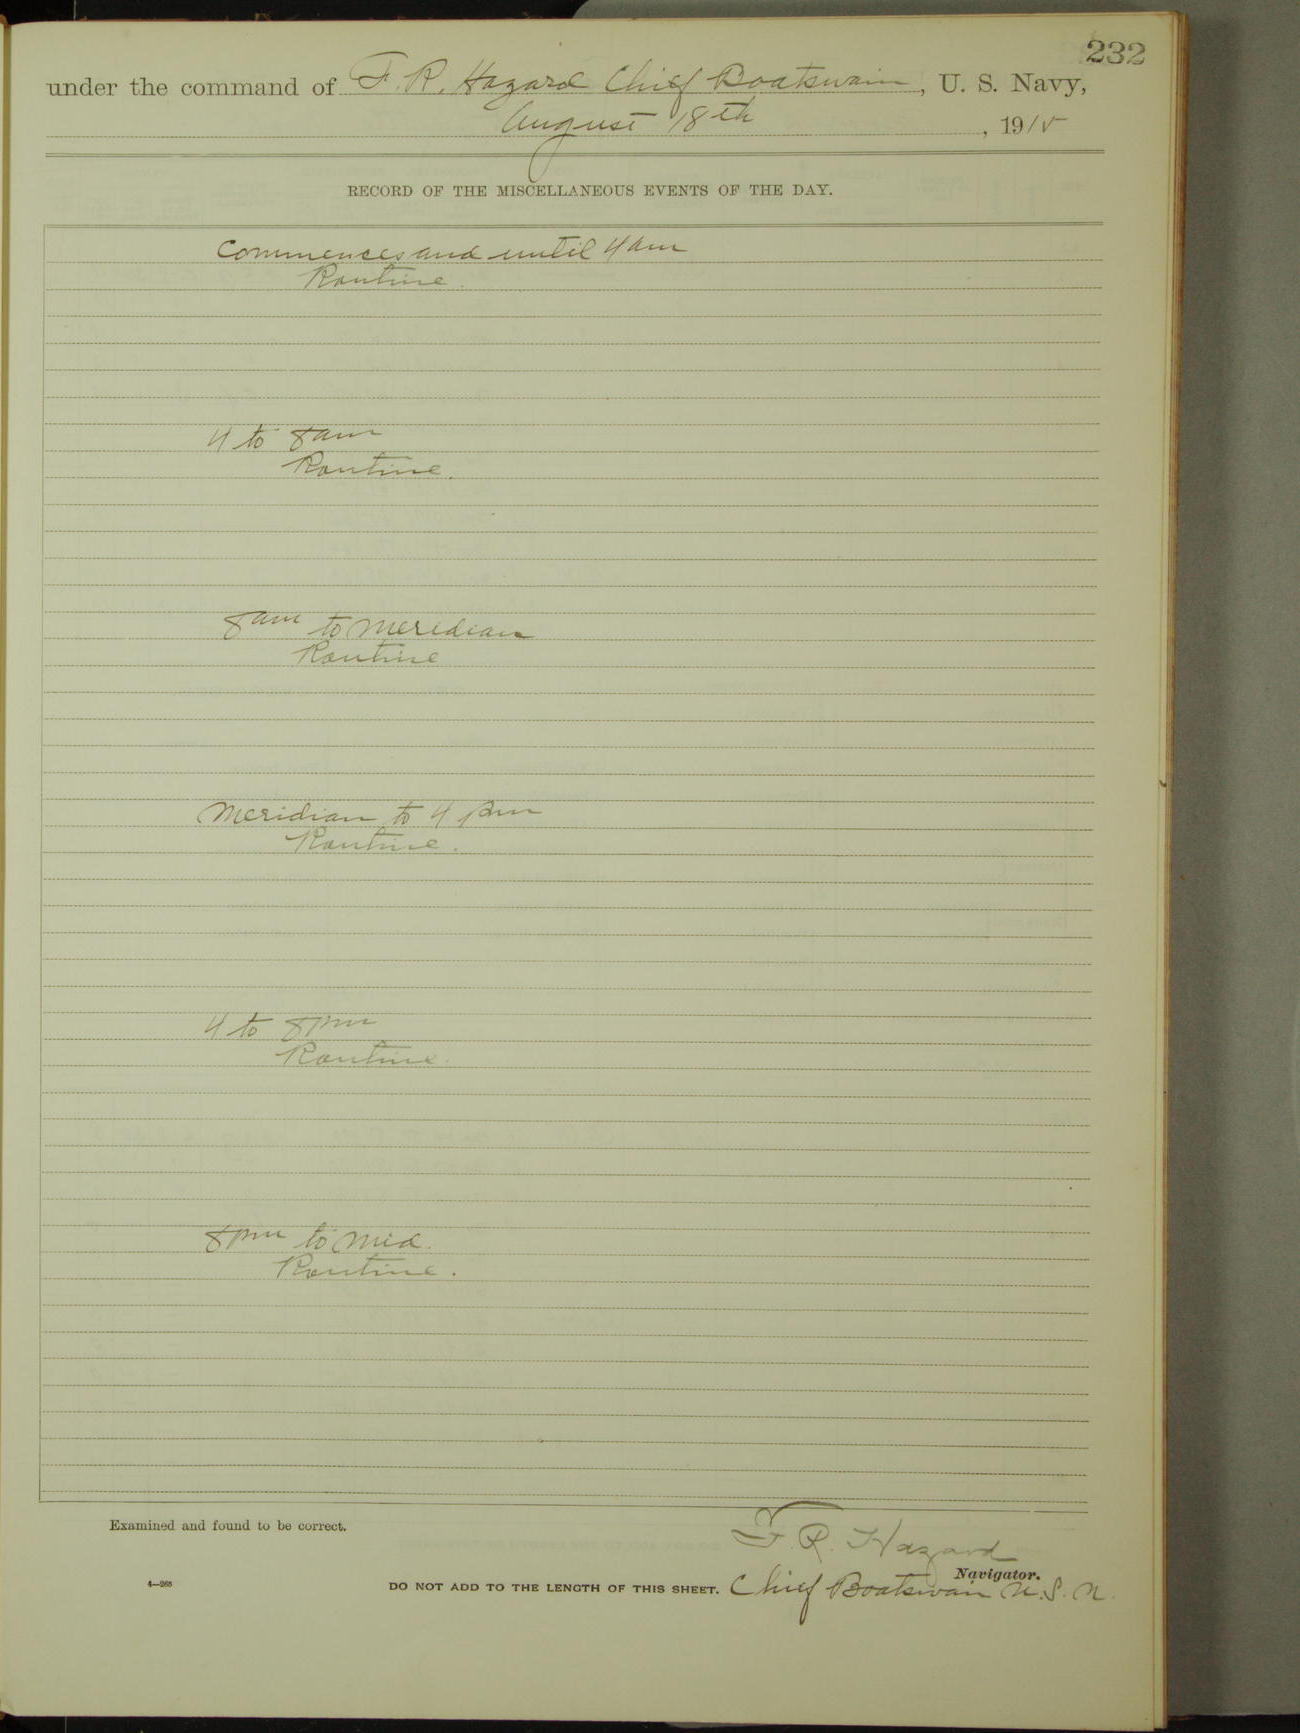 232
under the command of F. R. Hazard Chief Boatswain, U. S. Navy,
August 18th, 1915
RECORD OF THE MISCELLANEOUS EVENTS OF THE DAY.
Commences and until 4 am
Routine.
4 to 8 am
Routine.
8 am to Meridian
Routine
Meridian to 4 pm
Routine.
4 to 8 pm
Routine.
8 pm to Mid.
Routine.
Examined and found to be correct.
F. R. Hazard
Navigator.
4—265
DO NOT ADD TO THE LENGTH OF THIS SHEET.
Chief Boatswain U.S.N.